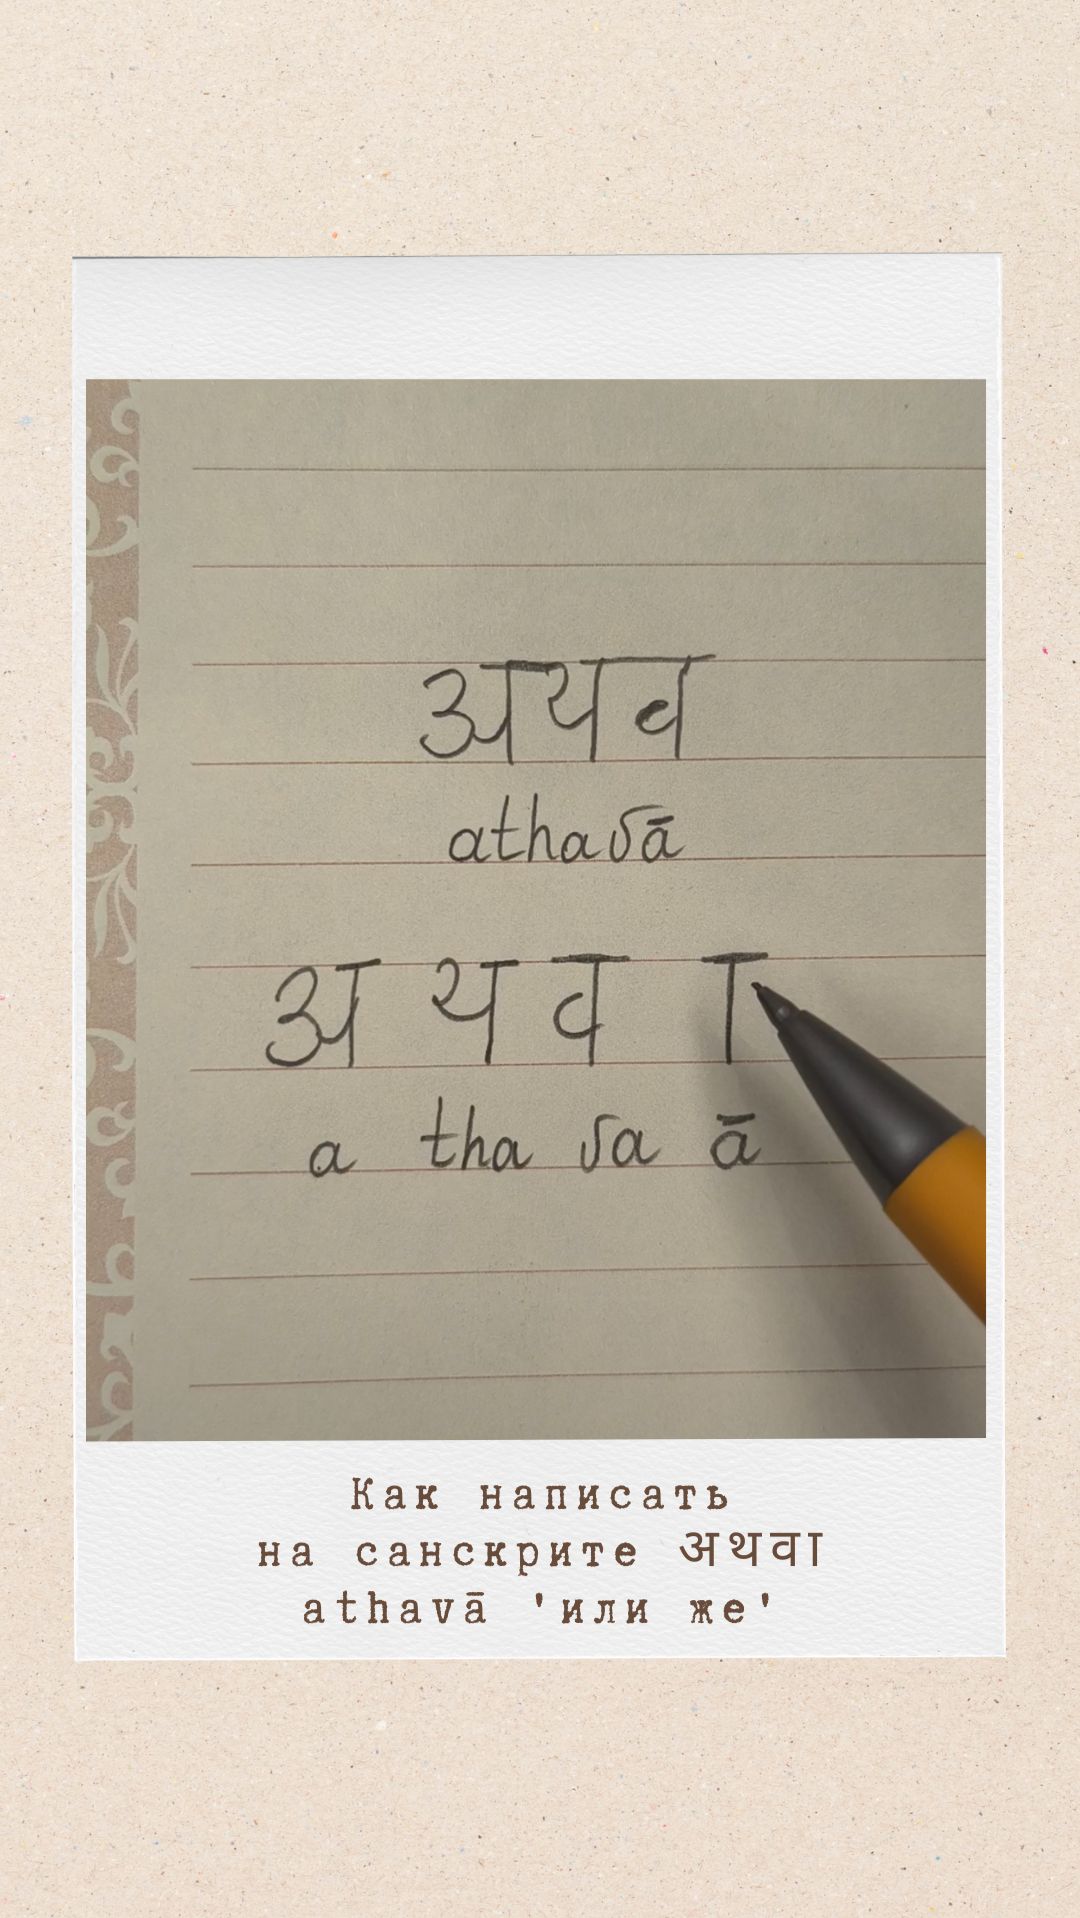 अथव
athavā
अ थ व ा
a tha va ā
Как написать
на санскрите अथवा
athavā 'или же'